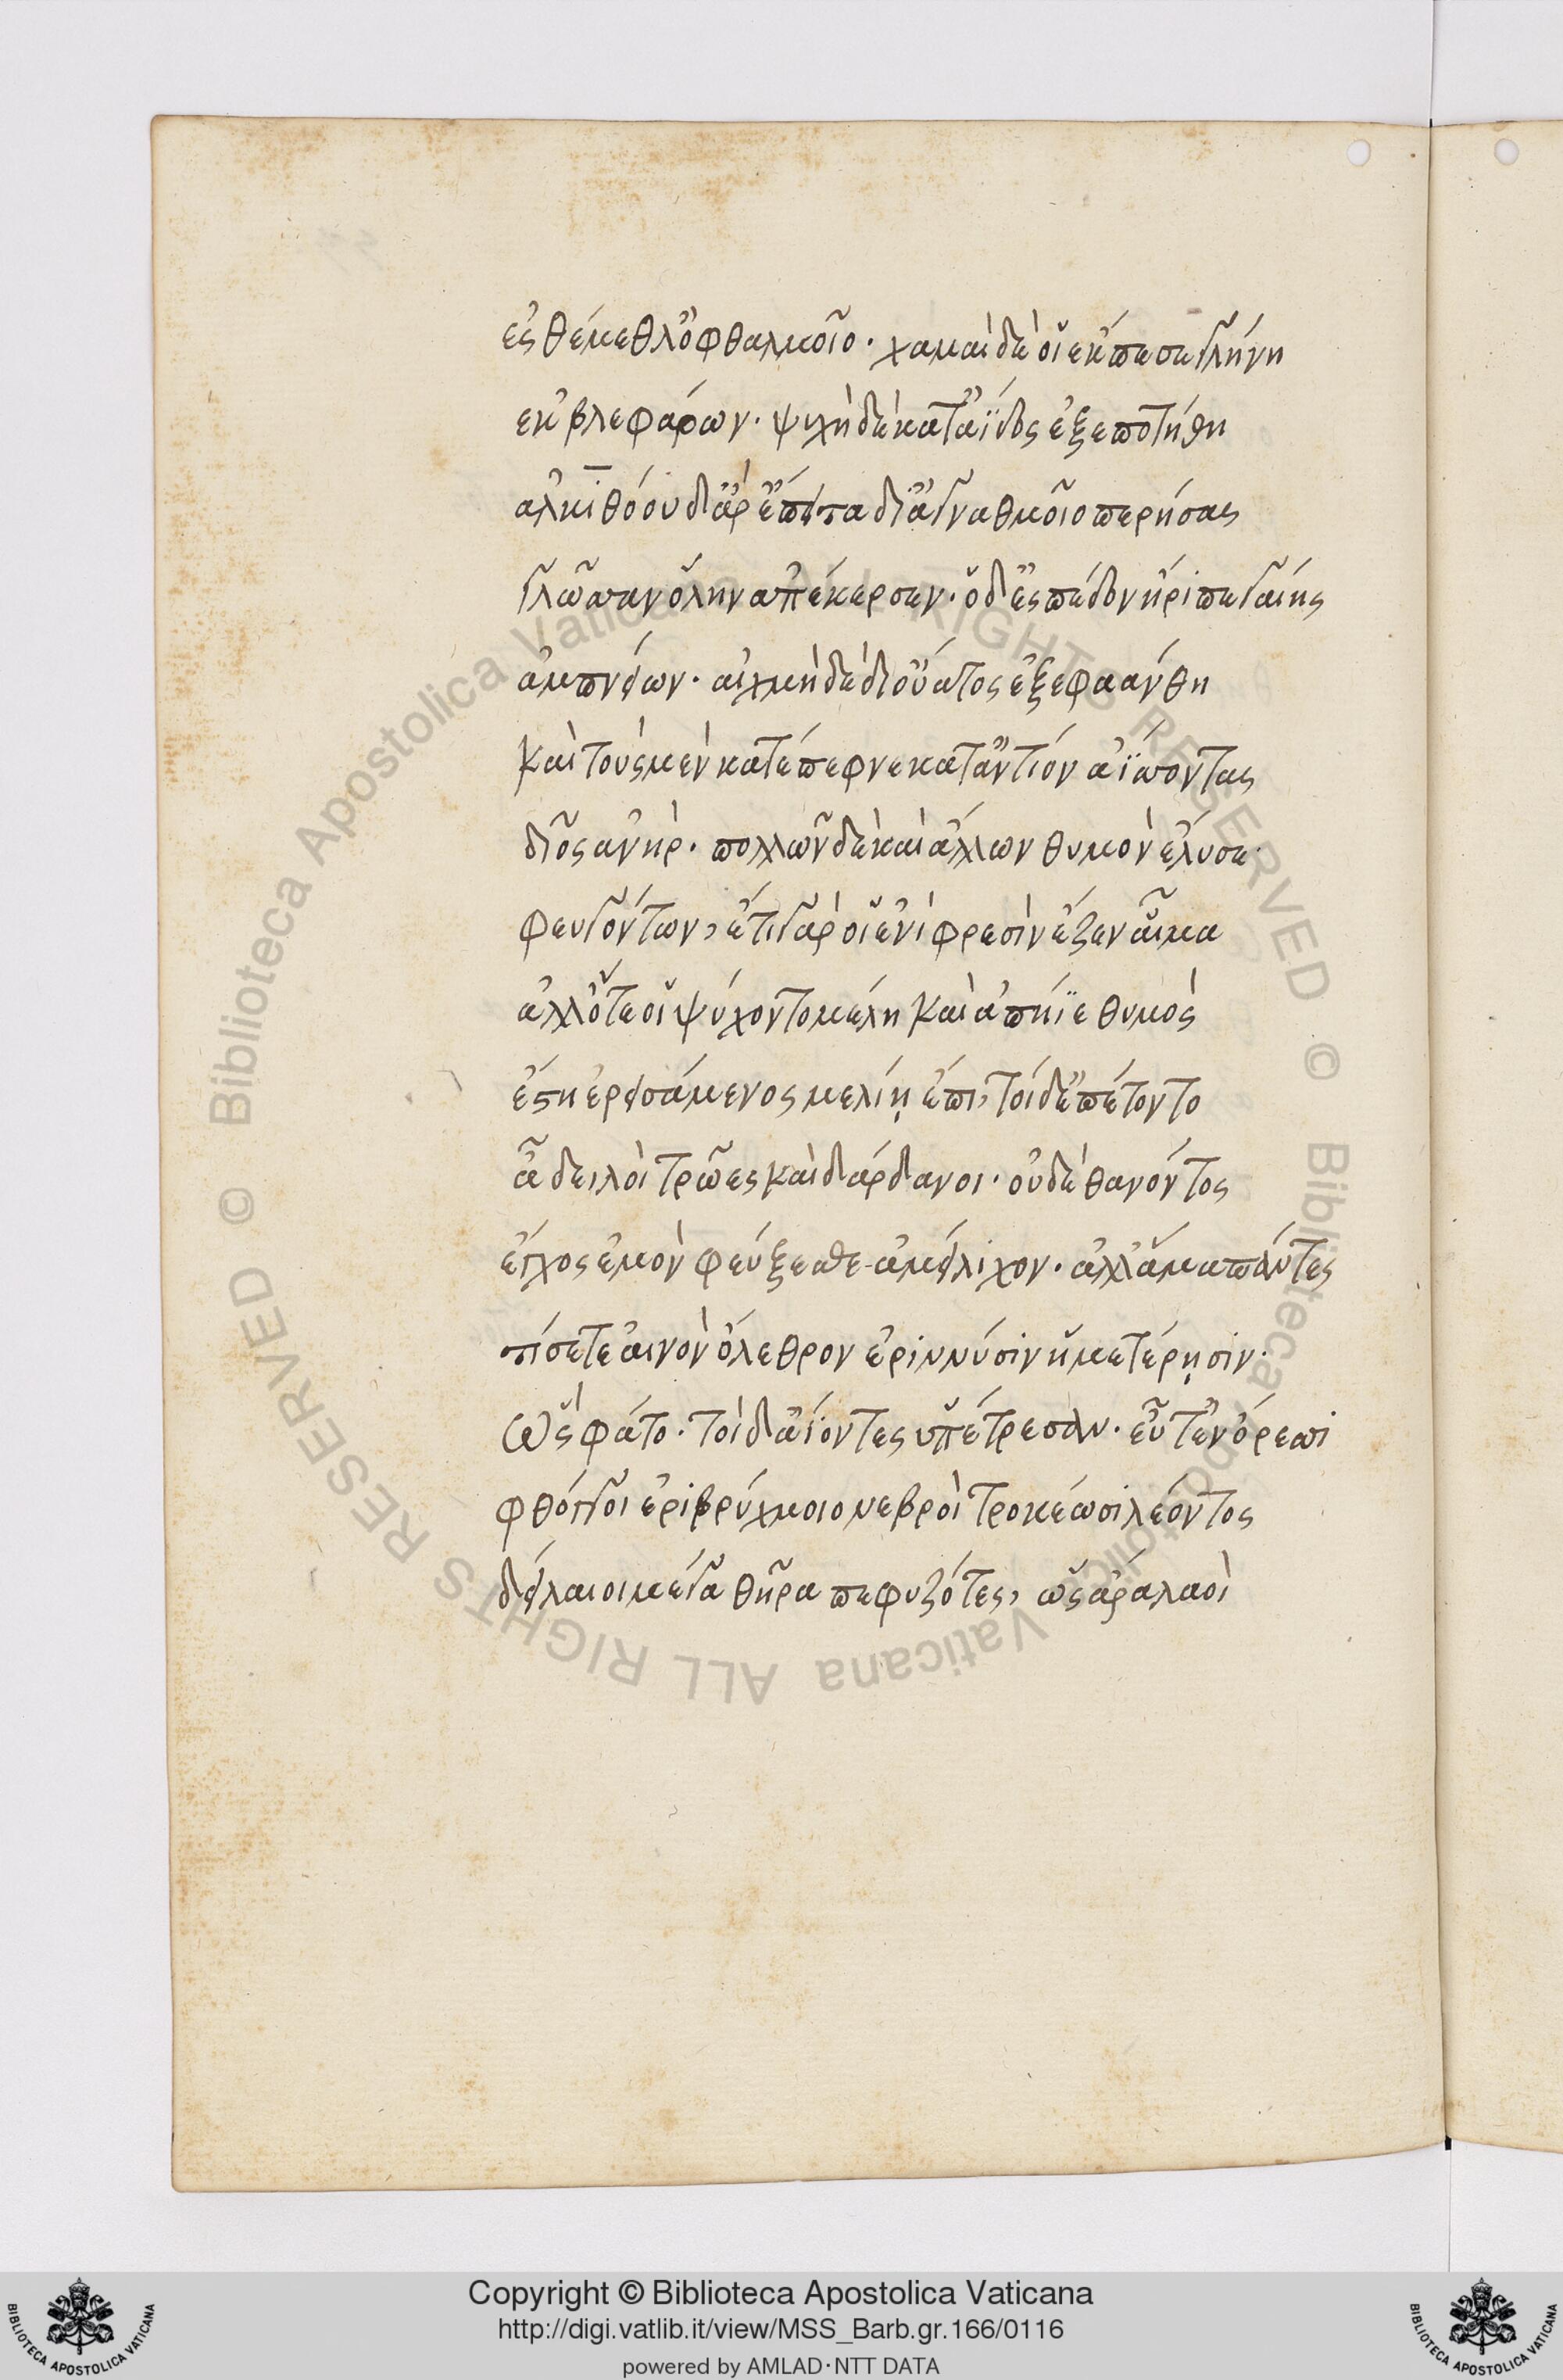 ἐς θέμεθλ' ὀφθαλμοῖο· χαμαὶ δέ οἱ ἔκπεσε γλήνη
ἐκ βλεφάρων· ψυχὴ δὲ κατ' ἄϊδος ἐξεποτήθη
ἀλκιθόου δ' ἄρ' ἔπειτα διὰ γναθμοῖο περήσας
γλῶσσαν ὅλην ἀπέκερσεν· ὁ δ' ἐς πέδον ἤριπε γαίης
ἀμπνείων· αἰχμὴ δὲ δι' οὔατος ἐξεφαάνθη
καὶ τοὺς μὲν κατέπεφνε κατ' ἀντίον ἀΐσσοντας
δῖος ἀνήρ· πολλῶν δὲ καὶ ἄλλων θυμὸν ἔλυσε·
φευγόντων, ἔτι γάρ οἱ ἐνὶ φρεσὶν ἔζεεν αἷμα
ἀλλ' ὅτε οἱ ψύχοντο μέλη καὶ ἀπήϊε θυμὸς
ἔστη ἐρεισάμενος μελίῃ ἔπι, τοὶ δ' ἐπέτοντο
ἆ δειλοὶ τρῶες καὶ δάρδανοι· οὐδὲ θανόντος
ἔγχος ἐμὸν φεύξεσθε ἀμείλιχον· ἀλλ' ἅμα πάντες
τίσετε αἰνὸν ὄλεθρον ἐριννύσιν ἡμετέρῃσιν·
Ὣς φάτο· τοὶ δ' ἀΐοντες ὑπέτρεσαν· εὖτ' ἐν ὄρεσσι
φθόγγοι ἐριβρύχμοιο νεβροὶ τρομέωσι λέοντος
δείλαιοι μέγα θῆρα πεφυζότες, ὣς ἄρα λαοὶ
Copyright © Biblioteca Apostolica Vaticana
http://digi.vatlib.it/view/MSS_Barb.gr.166/0116
powered by AMLAD·NTT DATA
BIBLIOTECA APOSTOLICA VATICANA
BIBLIOTECA APOSTOLICA VATICANA
© Biblioteca Apostolica Vaticana ALL RIGHTS RESERVED
© Biblioteca Apostolica Vaticana ALL RIGHTS RESERVED